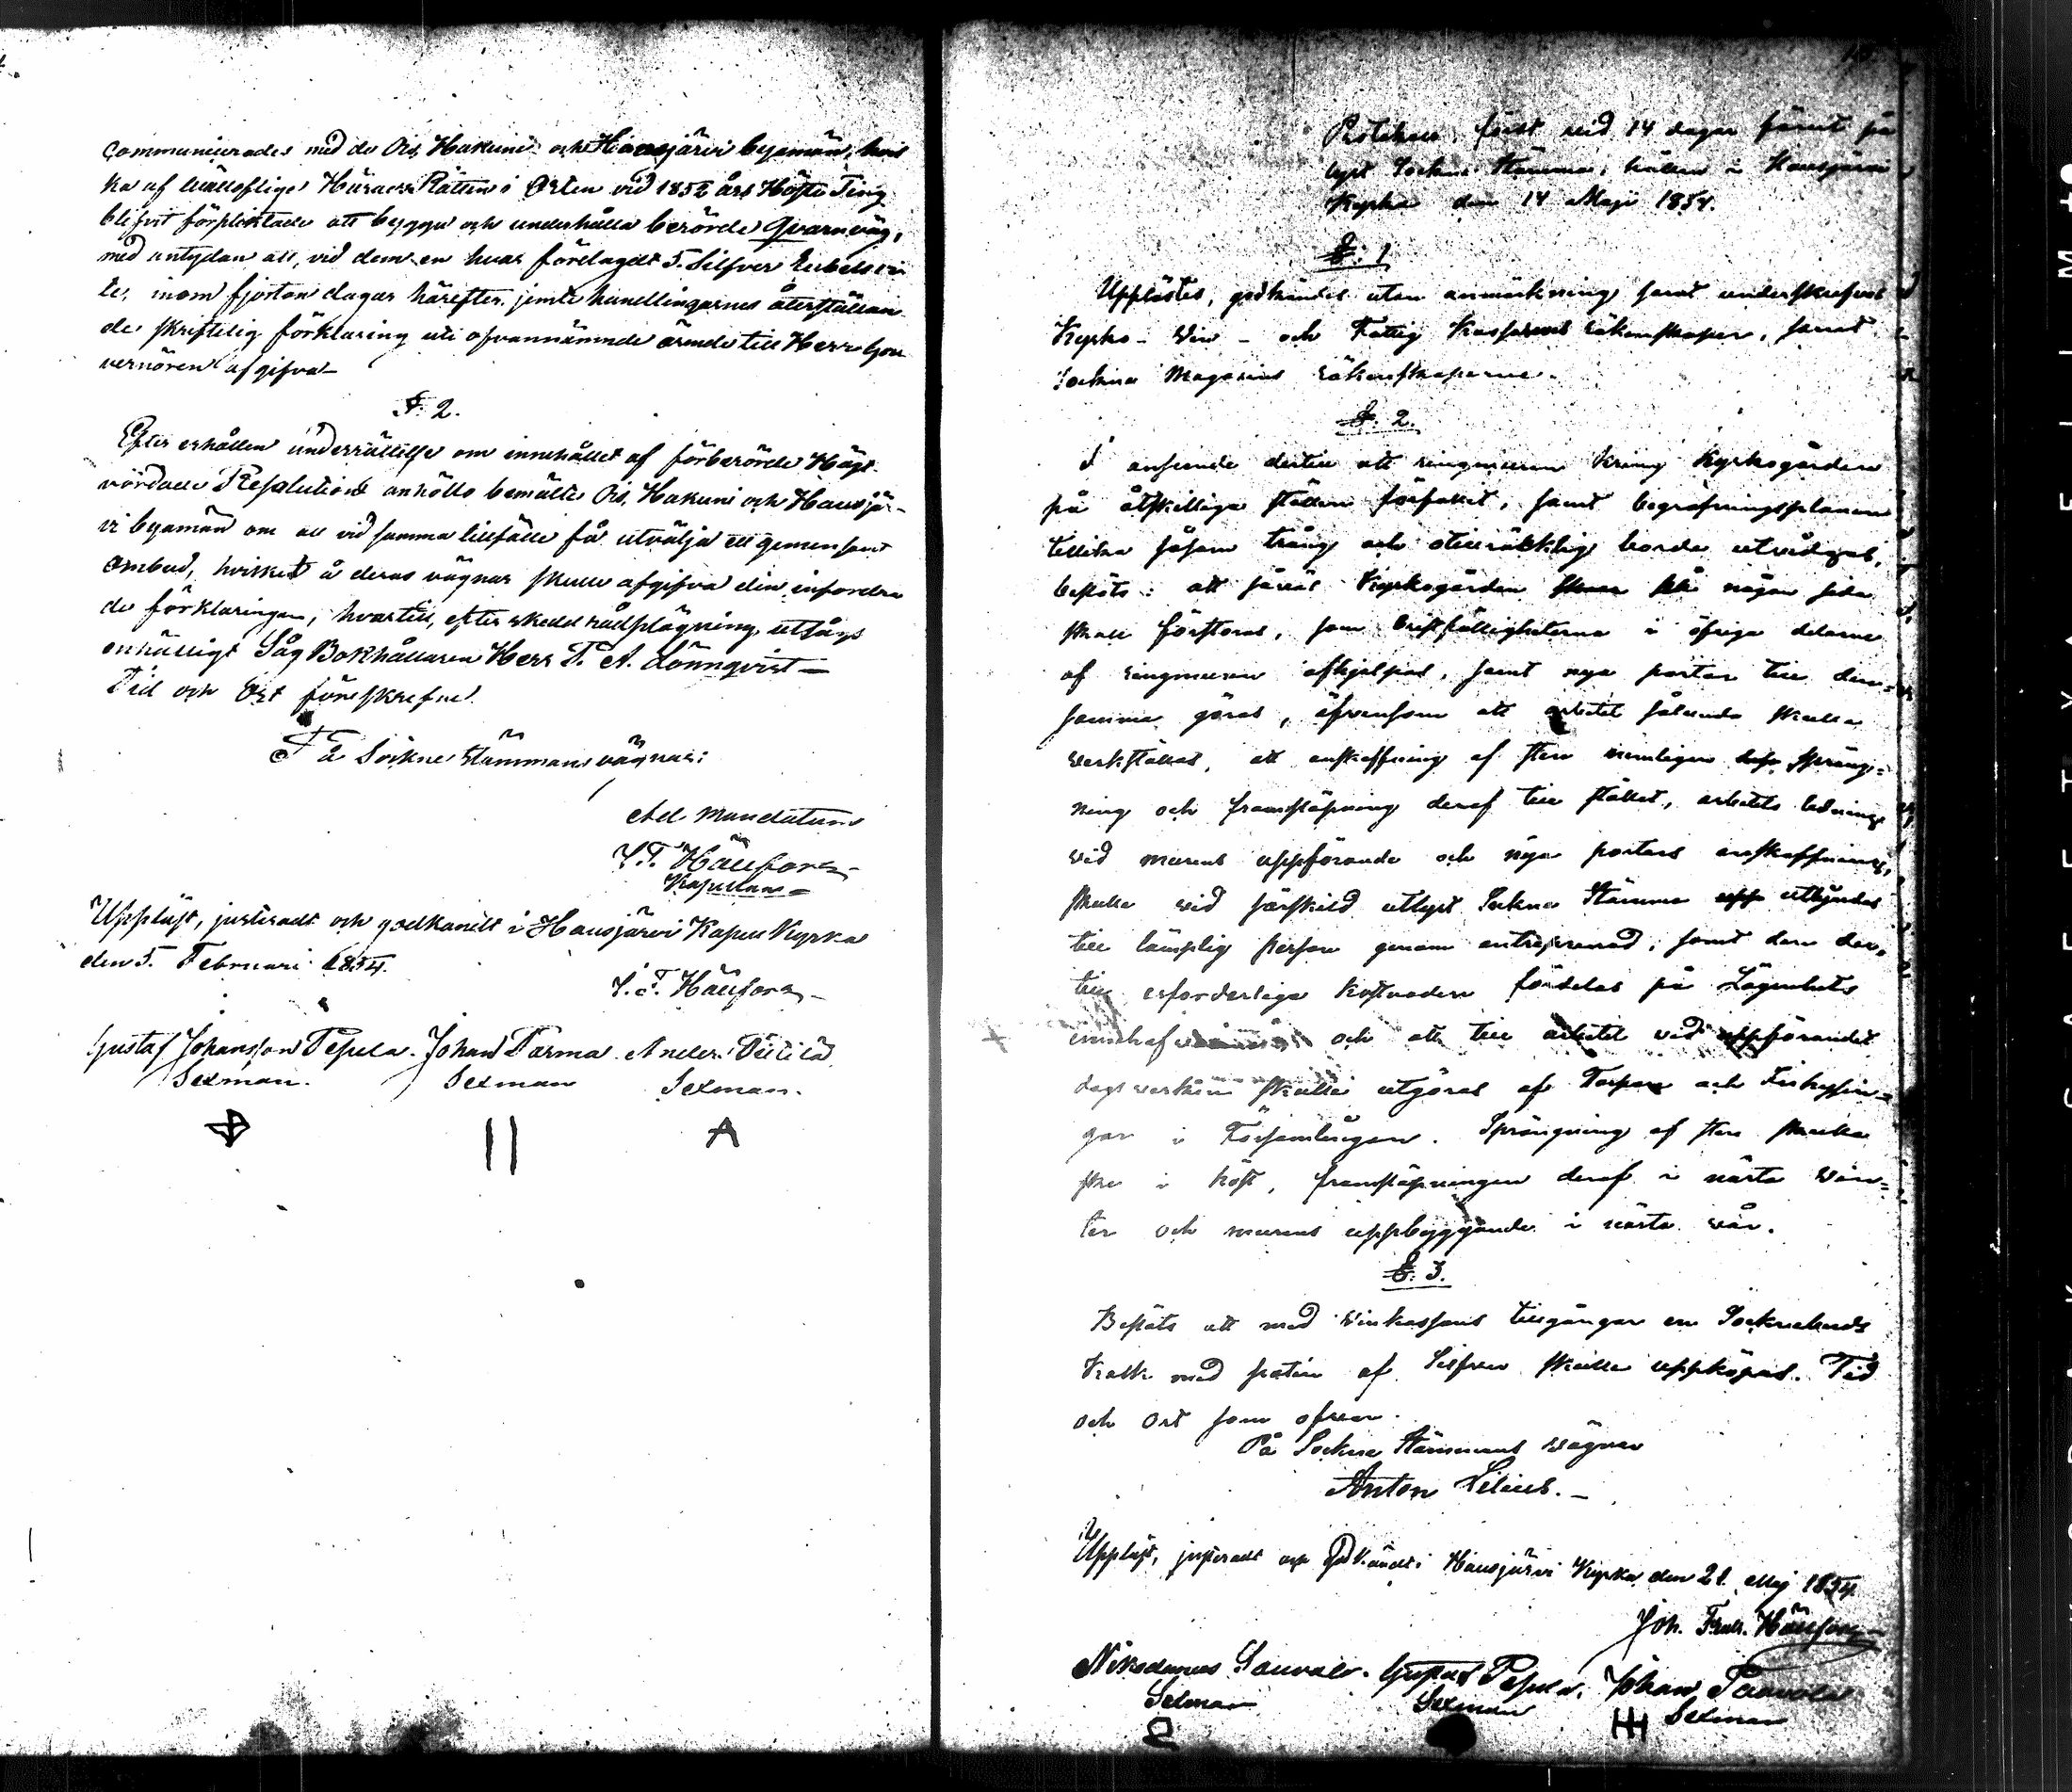 communicerades med de Ois, Hakuni och Hausjärvi byamän, hvil
ka af Wällofliga Härads Rätten i Orten vid 1852 års Höste Ting
blifvit förpliktade att bygga och underhålla berörde Qvarnväg,
med antydan att, vid dem en hvar förelagdt 5. Silfver Rubels vi
te, inom fjorton dagar härefter, jemte handlingarnes återställan
de skriftelig förklaring uti ofvannämnde ärende till Herr Gou
vernören afgifva
§. 2.
Efter erhållen underrättelse om innehållet af förberörde Högt
vördade Resolution anhöllo bemälte Ois, Hakuni och Hausjär-
vi byamän om att vid samma tillfälle få utvälja ett gemensamt
ombud, hvilket å deras vägnar skulle afgifva den infordra
de förklaringen, hvartill, efter skedd rådplägning utsågs
enhälligt Såg Bokhållaren Herr F. A. Lönnqvist
Tid och Ort föreskrefne.
På Sockne Stämmans vägnar:
Ad Mandatum
J. F. Hällfors
Kapellan
Uppläst, justeradt och godkändt i Hausjärvi Kapell Kyrka
den 5. Februari 1854.
J. F. Hällfors
Gustaf Johansson Pepula. Johan Parma. Anders
Sexman. Sexman Sexman.
Protokoll, fördt vid 14 dagar förut på
lyst Sockne Stämma, hållen i Hausjärvi
Kyrka den 14 Maji 1854.
§. 1
Upplästes, godkändes utan anmärkning samt underskrefvos
Kyrko- Vin- och Fattig Kassornas räkenskaper, samt
Sockne Magasins räkenskaperne.
§. 2.
I anseende dertill att ringmuren kring Kyrkogården
på åtskilliga ställen förfallit, samt begrafningsplanen
tillika såsom trång och otillräcklig borde utvidgas,
beslöts: att såväl Kyrkogården på någon sida
skall förstoras, som bristfälligheterna i öfriga delarne
af ringmuren afhjelpas, samt nya portar till den-
samma göras, äfvensom att arbetet sålunda skulle
verkställas, att anskaffning af sten nemligen dess spräng-
ning och framsläpning deraf till stället, arbetets ledning
vid murens uppförande och nya portars anskaffning,
skulle vid särskild utlyst Sockne Stämma utbjudas
till lämplig person genom entreprenad, samt den der-
till erforderliga kostnaden fördelas på Lägenhets
innehafvarne och att till arbetet vid uppförandet
dagsverken skulle utgöras af Torpare och Inhysin-
gar i Församlingen. Sprängning af sten skulle
ske i höst, framsläpningen deraf i nästa vin-
ter och murens uppbyggande i nästa vår.
§. 3.
Beslöts att med Vinkassans tillgångar en Sockenbuds
Kalk med paten af Silfver skulle uppköpas. Tid
och Ort som ofvan.
På Sockne Stämmans vägnar
Anton Lilius.
Uppläst, justeradt och godkändt i Hausjärvi Kyrka den 21. Maj 1854.
Joh. Fredr. Hällfors
Nikodemus Sauvala. Gustaf Pepula. Johan Paavola
Sexman Sexman Sexman